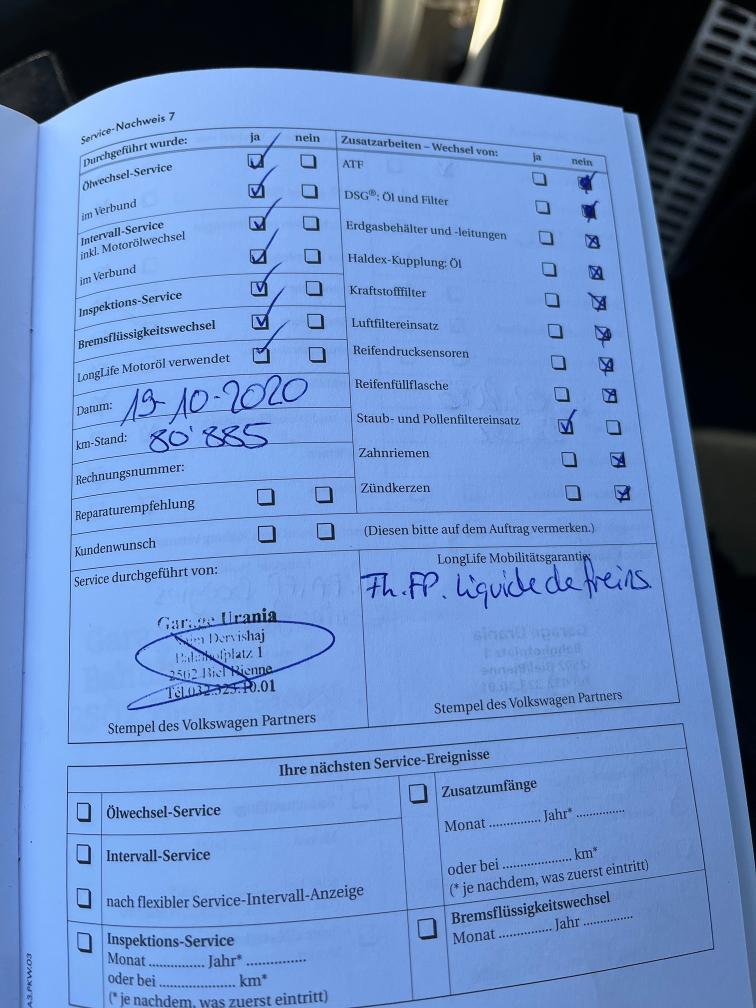 Service-Nachweis 7
Durchgeführt wurde: ja nein
Ölwechsel-Service
im Verbund
Intervall-Service
inkl. Motorölwechsel
im Verbund
Inspektions-Service
Bremsflüssigkeitswechsel
LongLife Motoröl verwendet
Datum: 19-10-2020
km-Stand: 80'885
Rechnungsnummer:
Reparaturempfehlung
Kundenwunsch
Zusatzarbeiten – Wechsel von: ja nein
ATF
DSG®: Öl und Filter
Erdgasbehälter und -leitungen
Haldex-Kupplung: Öl
Kraftstofffilter
Luftfiltereinsatz
Reifendrucksensoren
Reifenfüllflasche
Staub- und Pollenfiltereinsatz
Zahnriemen
Zündkerzen
(Diesen bitte auf dem Auftrag vermerken.)
Service durchgeführt von:
Garage Urania
Dervishaj
Bahnhofplatz 1
2502 Biel Bienne
Tél.032.323.10.01
Stempel des Volkswagen Partners
LongLife Mobilitätsgarantie
FP. Liquide de freins
Stempel des Volkswagen Partners
Ihre nächsten Service-Ereignisse
Ölwechsel-Service
Intervall-Service
nach flexibler Service-Intervall-Anzeige
Inspektions-Service
Monat ............. Jahr* ..............
oder bei .................. km*
(* je nachdem, was zuerst eintritt)
Zusatzumfänge
Monat ............. Jahr* .............
oder bei .................. km*
(* je nachdem, was zuerst eintritt)
Bremsflüssigkeitswechsel
Monat ............. Jahr .............
A3.PKW.03